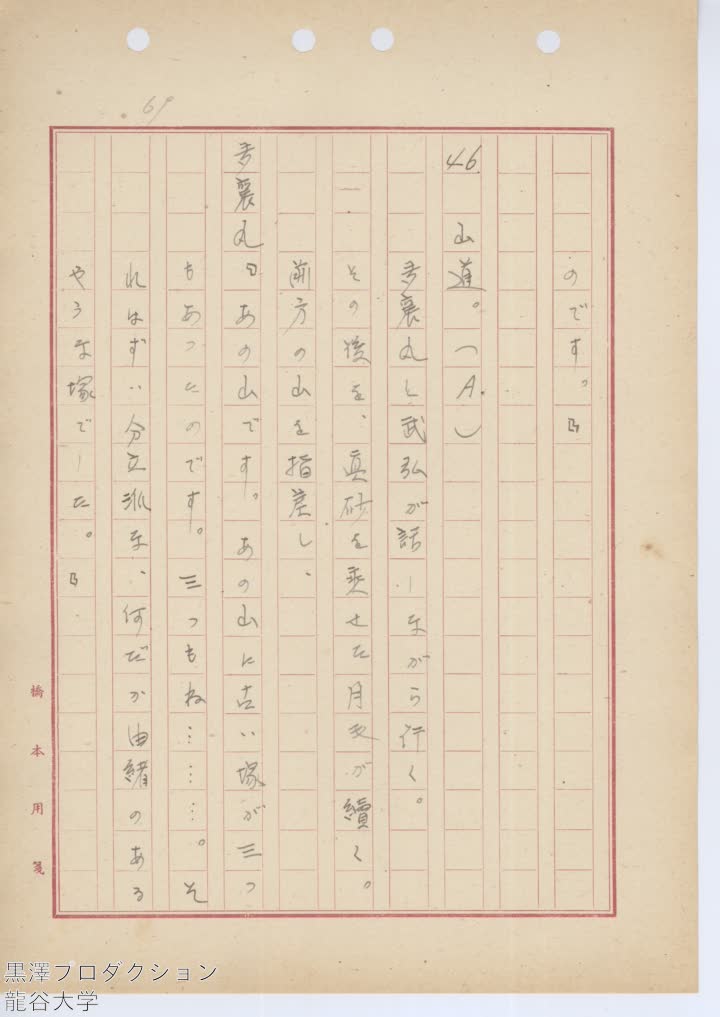 69
のです。』
46. 山道。(A.)
多襄丸と武弘が話しながら行く。
その後を、真砂を乗せた月毛が續く。
前方の山を指差し、
多襄丸『あの山です。あの山に古い塚が三つ
もあつたのです。三つもね………。そ
れはずい分立派な、何だか由緒のある
やうな塚でした。』
橋本用箋
黒澤プロダクション
龍谷大学